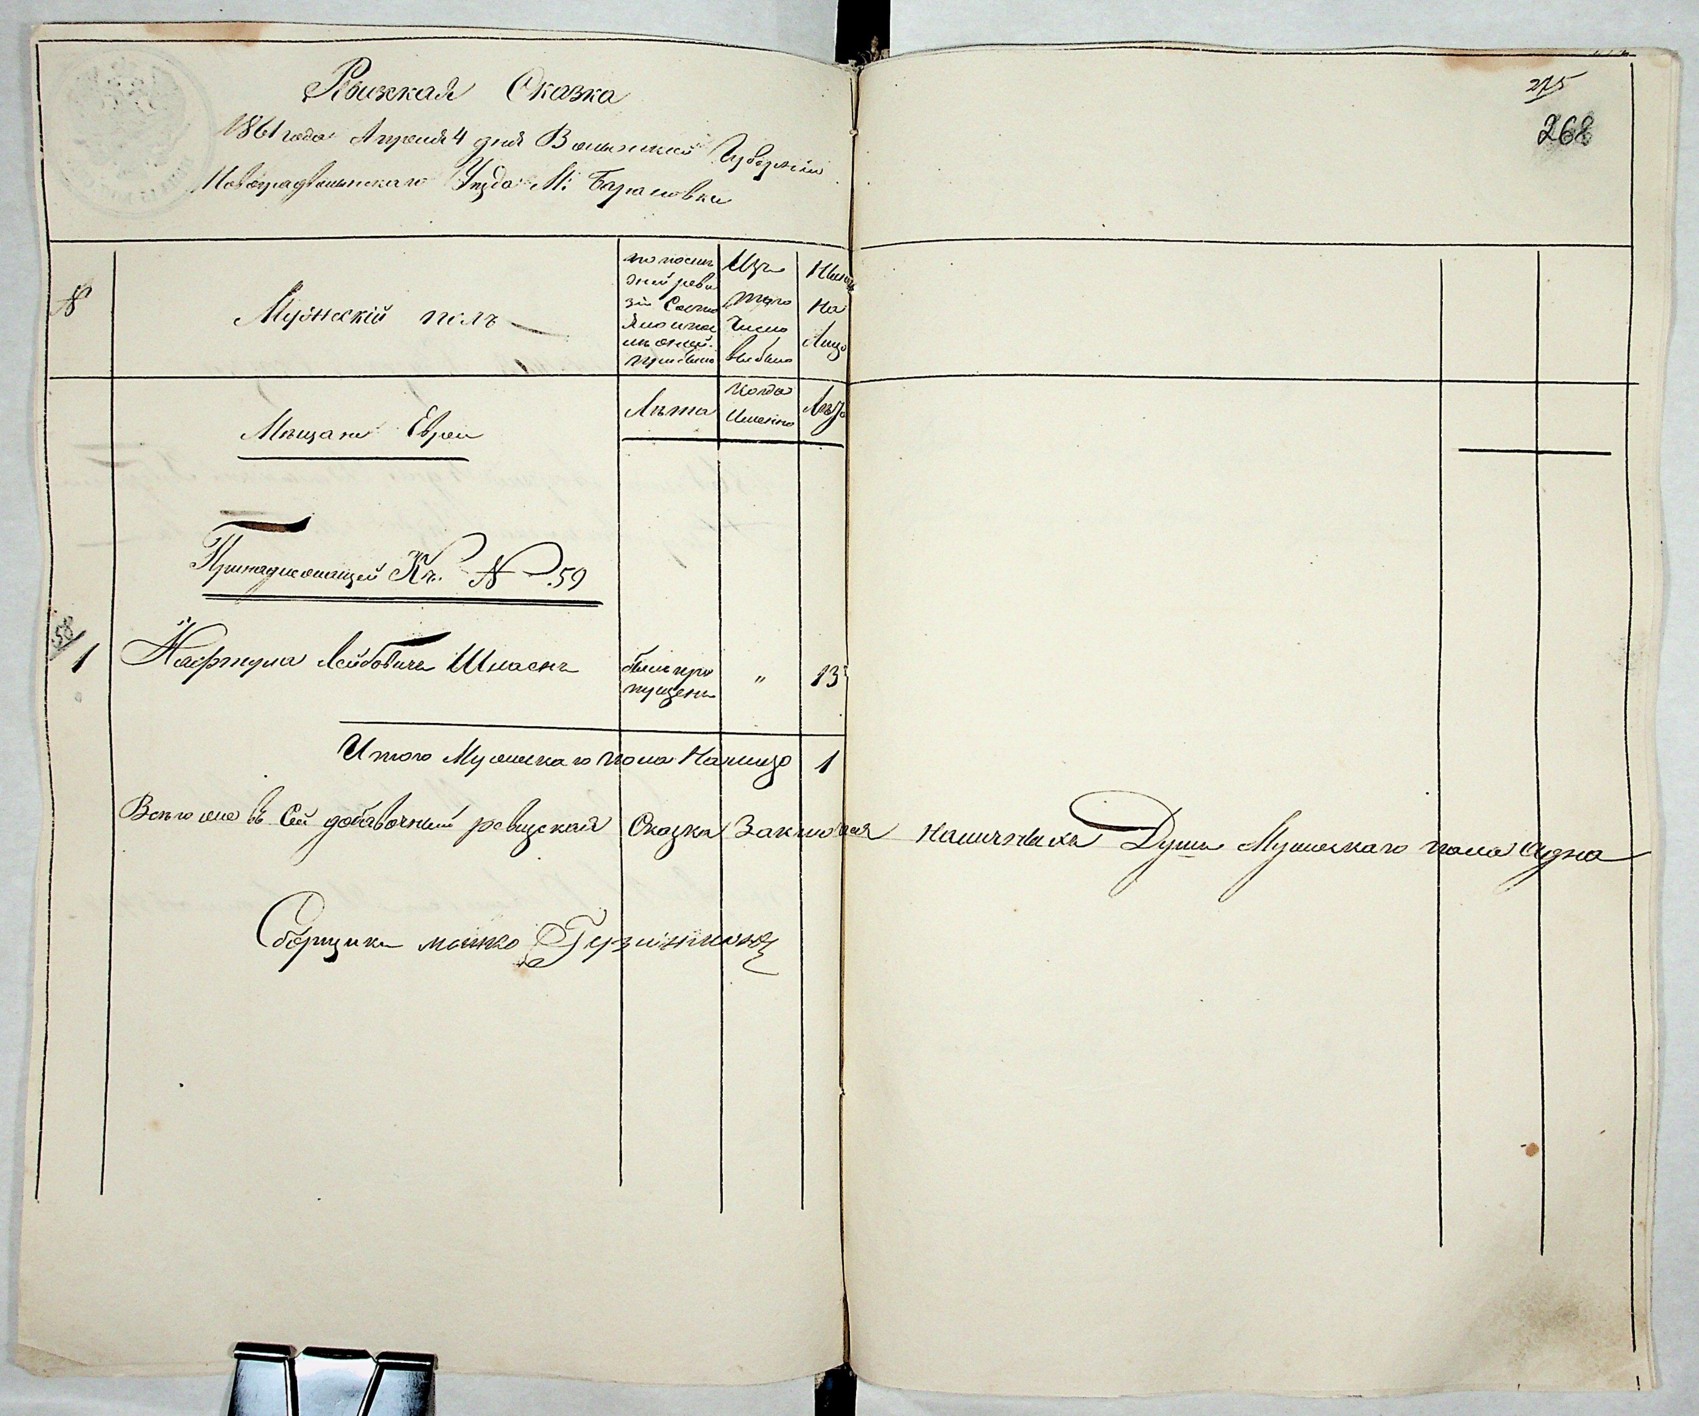 Ревизская Сказка
1861 года Апреля 4 дня Волынской Губернии
Новоградволынского Уезда М: Барановки
275
268
№
Мужеский полъ
по послѣ
дней реви
зіи Состо
яло и пос
лѣ оной
прибыло
Изъ
того
Числа
выбыло
Нынѣ
На
Лицо
Мѣщане Евреи
Лѣта
Когда
Именно
Лѣта
Принадлежащей Къ № 59
58
1 Нафтула Лейбовичъ Шпаенъ былъ про
пущенъ " 13
Итого Мужескаго пола Налицо 1
Всего же въ Сей добавочный ревизская Сказка Заключая наличныхъ Душъ Мужескаго пола Одна
Сборщикъ мошко